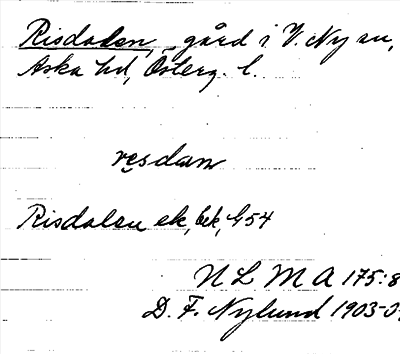 Risdalen, gård i V. Ny sn,
Aska hd, Österg. l.
resdan
Risdalen ek, bek, G 54
N L M A 175:8
D. F. Nylund 1903-0